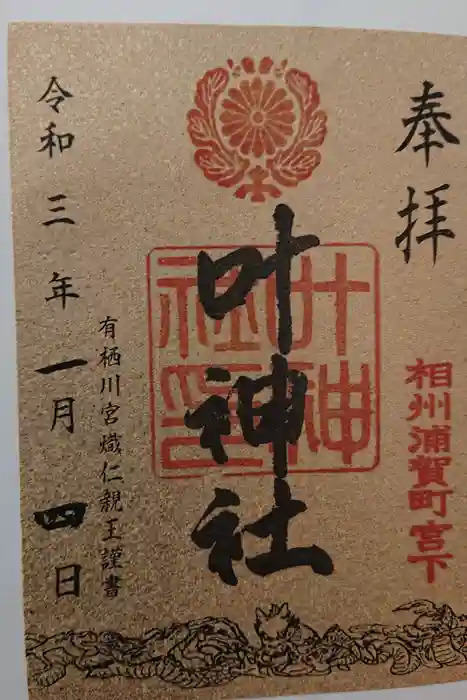 奉拝
相州浦賀町宮下
叶神社
叶神社印
有栖川宮熾仁親王謹書
令和三年一月四日